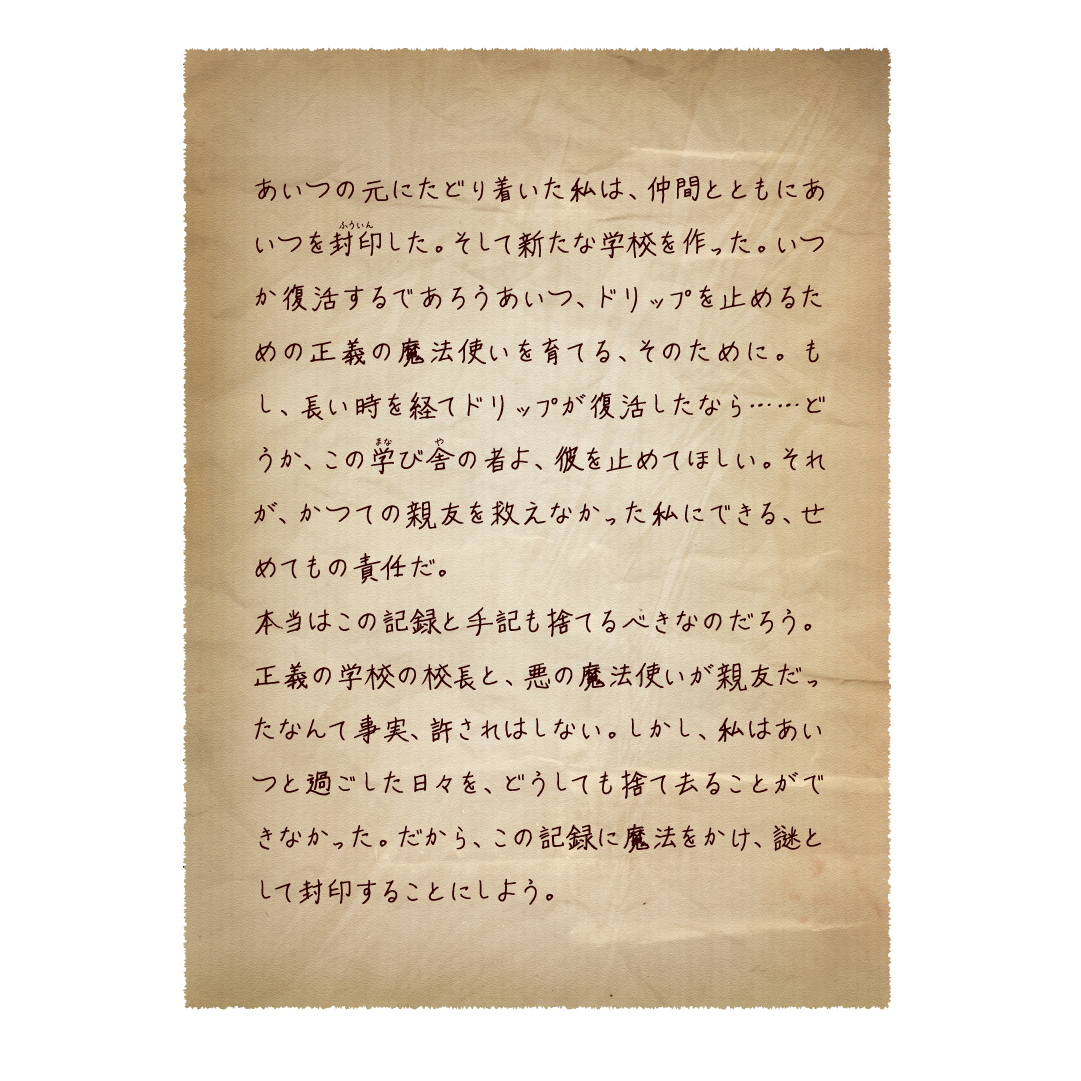 あいつの元にたどり着いた私は、仲間とともにあ
ふういん
いつを封印した。そして新たな学校を作った。いつ
か復活するであろうあいつ、ドリップを止めるた
めの正義の魔法使いを育てる、そのために。も
し、長い時を経てドリップが復活したなら……ど
まな や
うか、この学び舎の者よ、彼を止めてほしい。それ
が、かつての親友を救えなかった私にできる、せ
めてもの責任だ。
本当はこの記録と手記も捨てるべきなのだろう。
正義の学校の校長と、悪の魔法使いが親友だっ
たなんて事実、許されはしない。しかし、私はあい
つと過ごした日々を、どうしても捨て去ることがで
きなかった。だから、この記録に魔法をかけ、謎と
して封印することにしよう。